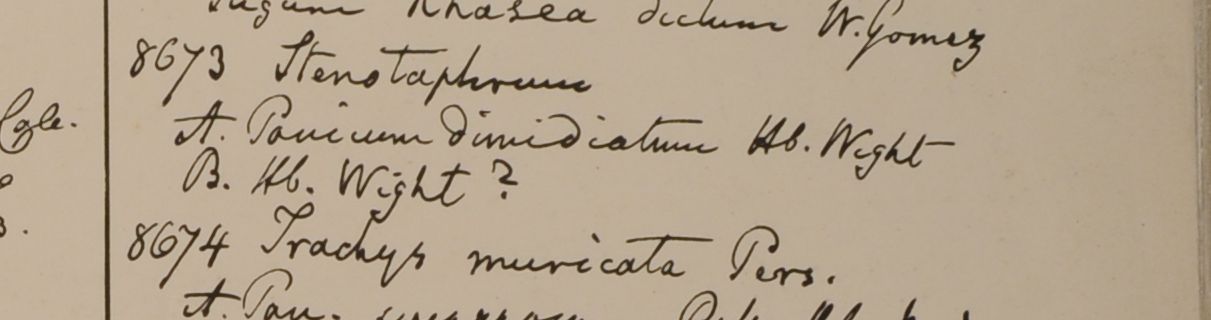 Khasea dictum W. Gomez
8673 Stenotaphrum
Cgle.
A. Panicum dimidiatum Hb. Wight
B. Hb. Wight ?
8674 Trachys muricata Pers.
A. Pan. squarrosum